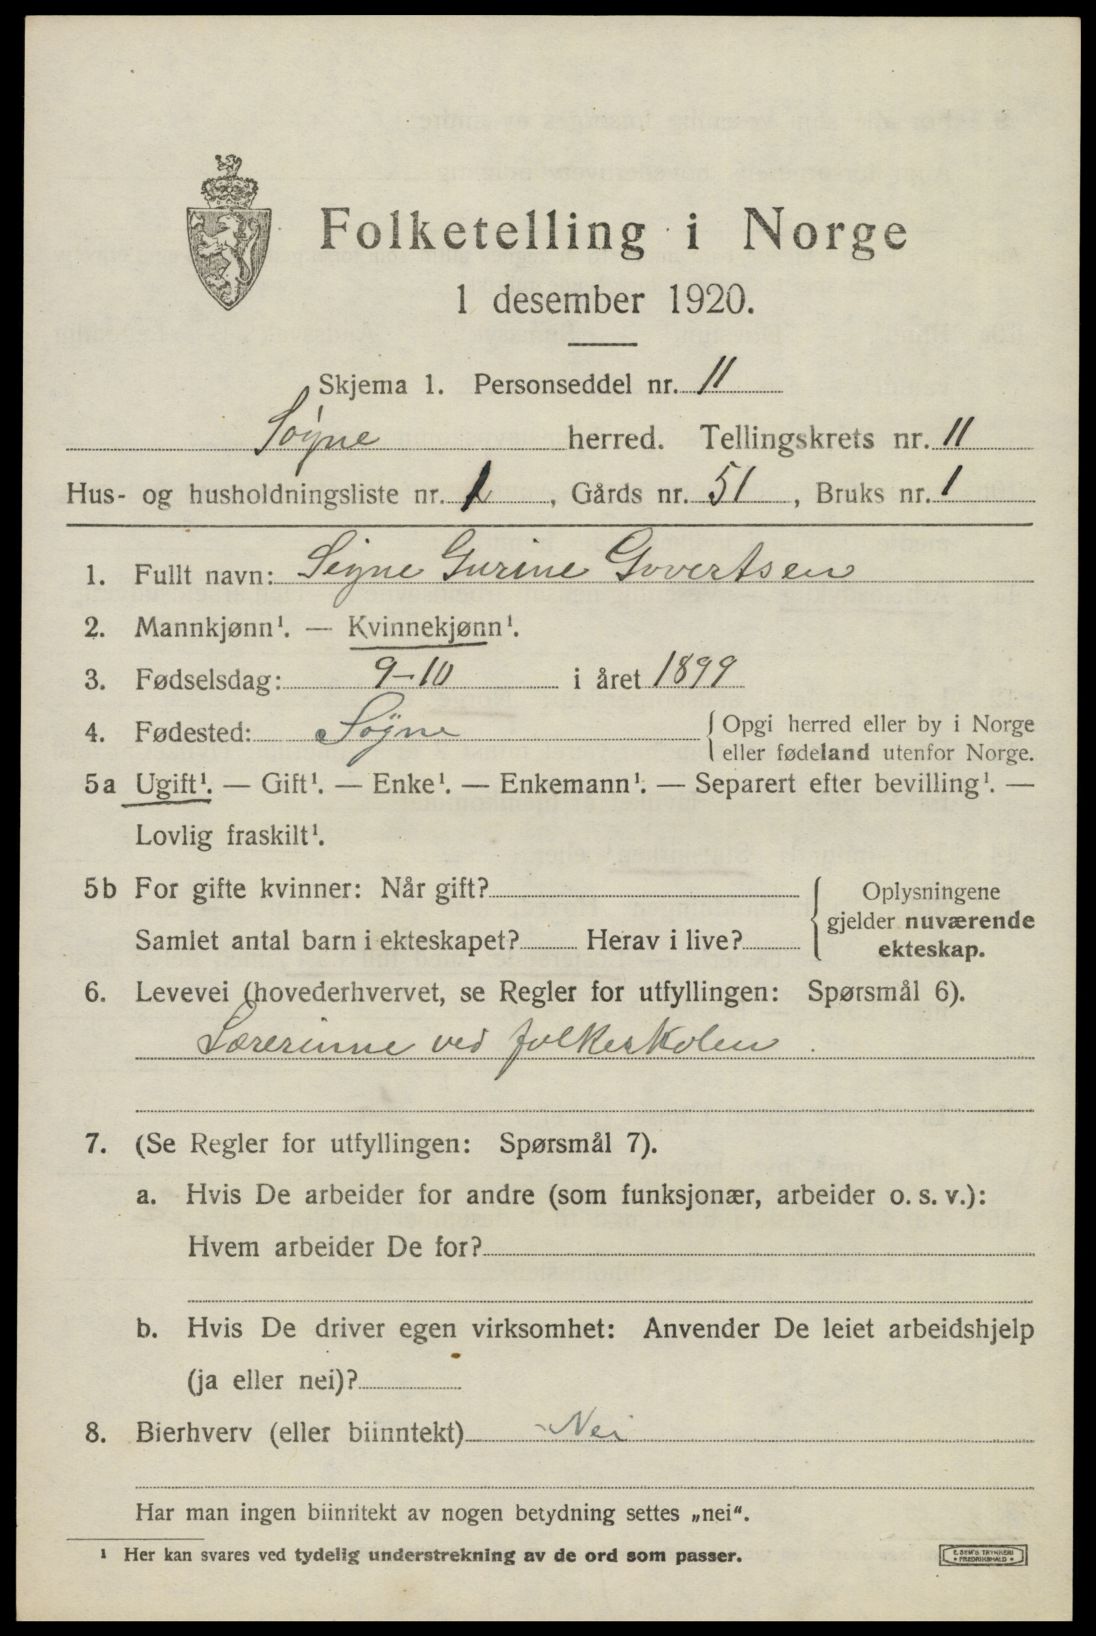 Folketelling i Norge
1 desember 1920.
Skjema 1. Personseddel nr. 11
Søgne herred. Tellingskrets nr. 11
Hus- og husholdningsliste nr. 1, Gårds nr. 51, Bruks nr. 1
1. Fullt navn: Signe Gurine Govertsen
2. Mannkjønn¹. — Kvinnekjønn¹.
3. Fødselsdag: 9-10 i året 1899
4. Fødested: Søgne { Opgi herred eller by i Norge
eller fødeland utenfor Norge.
5a Ugift¹. — Gift¹. — Enke¹. — Enkemann¹. — Separert efter bevilling¹. —
Lovlig fraskilt¹.
5b For gifte kvinner: Når gift? { Oplysningene
gjelder nuværende
Samlet antal barn i ekteskapet? Herav i live? ekteskap.
6. Levevei (hovederhvervet, se Regler for utfyllingen: Spørsmål 6).
Lærerinne ved folkeskolen.
7. (Se Regler for utfyllingen: Spørsmål 7).
a. Hvis De arbeider for andre (som funksjonær, arbeider o. s. v.):
Hvem arbeider De for?
b. Hvis De driver egen virksomhet: Anvender De leiet arbeidshjelp
(ja eller nei)?
8. Bierhverv (eller biinntekt) Nei
Har man ingen biinntekt av nogen betydning settes „nei“.
¹ Her kan svares ved tydelig understrekning av de ord som passer.
E. SEM'S TRYKKERI
FREDRIKSHALD